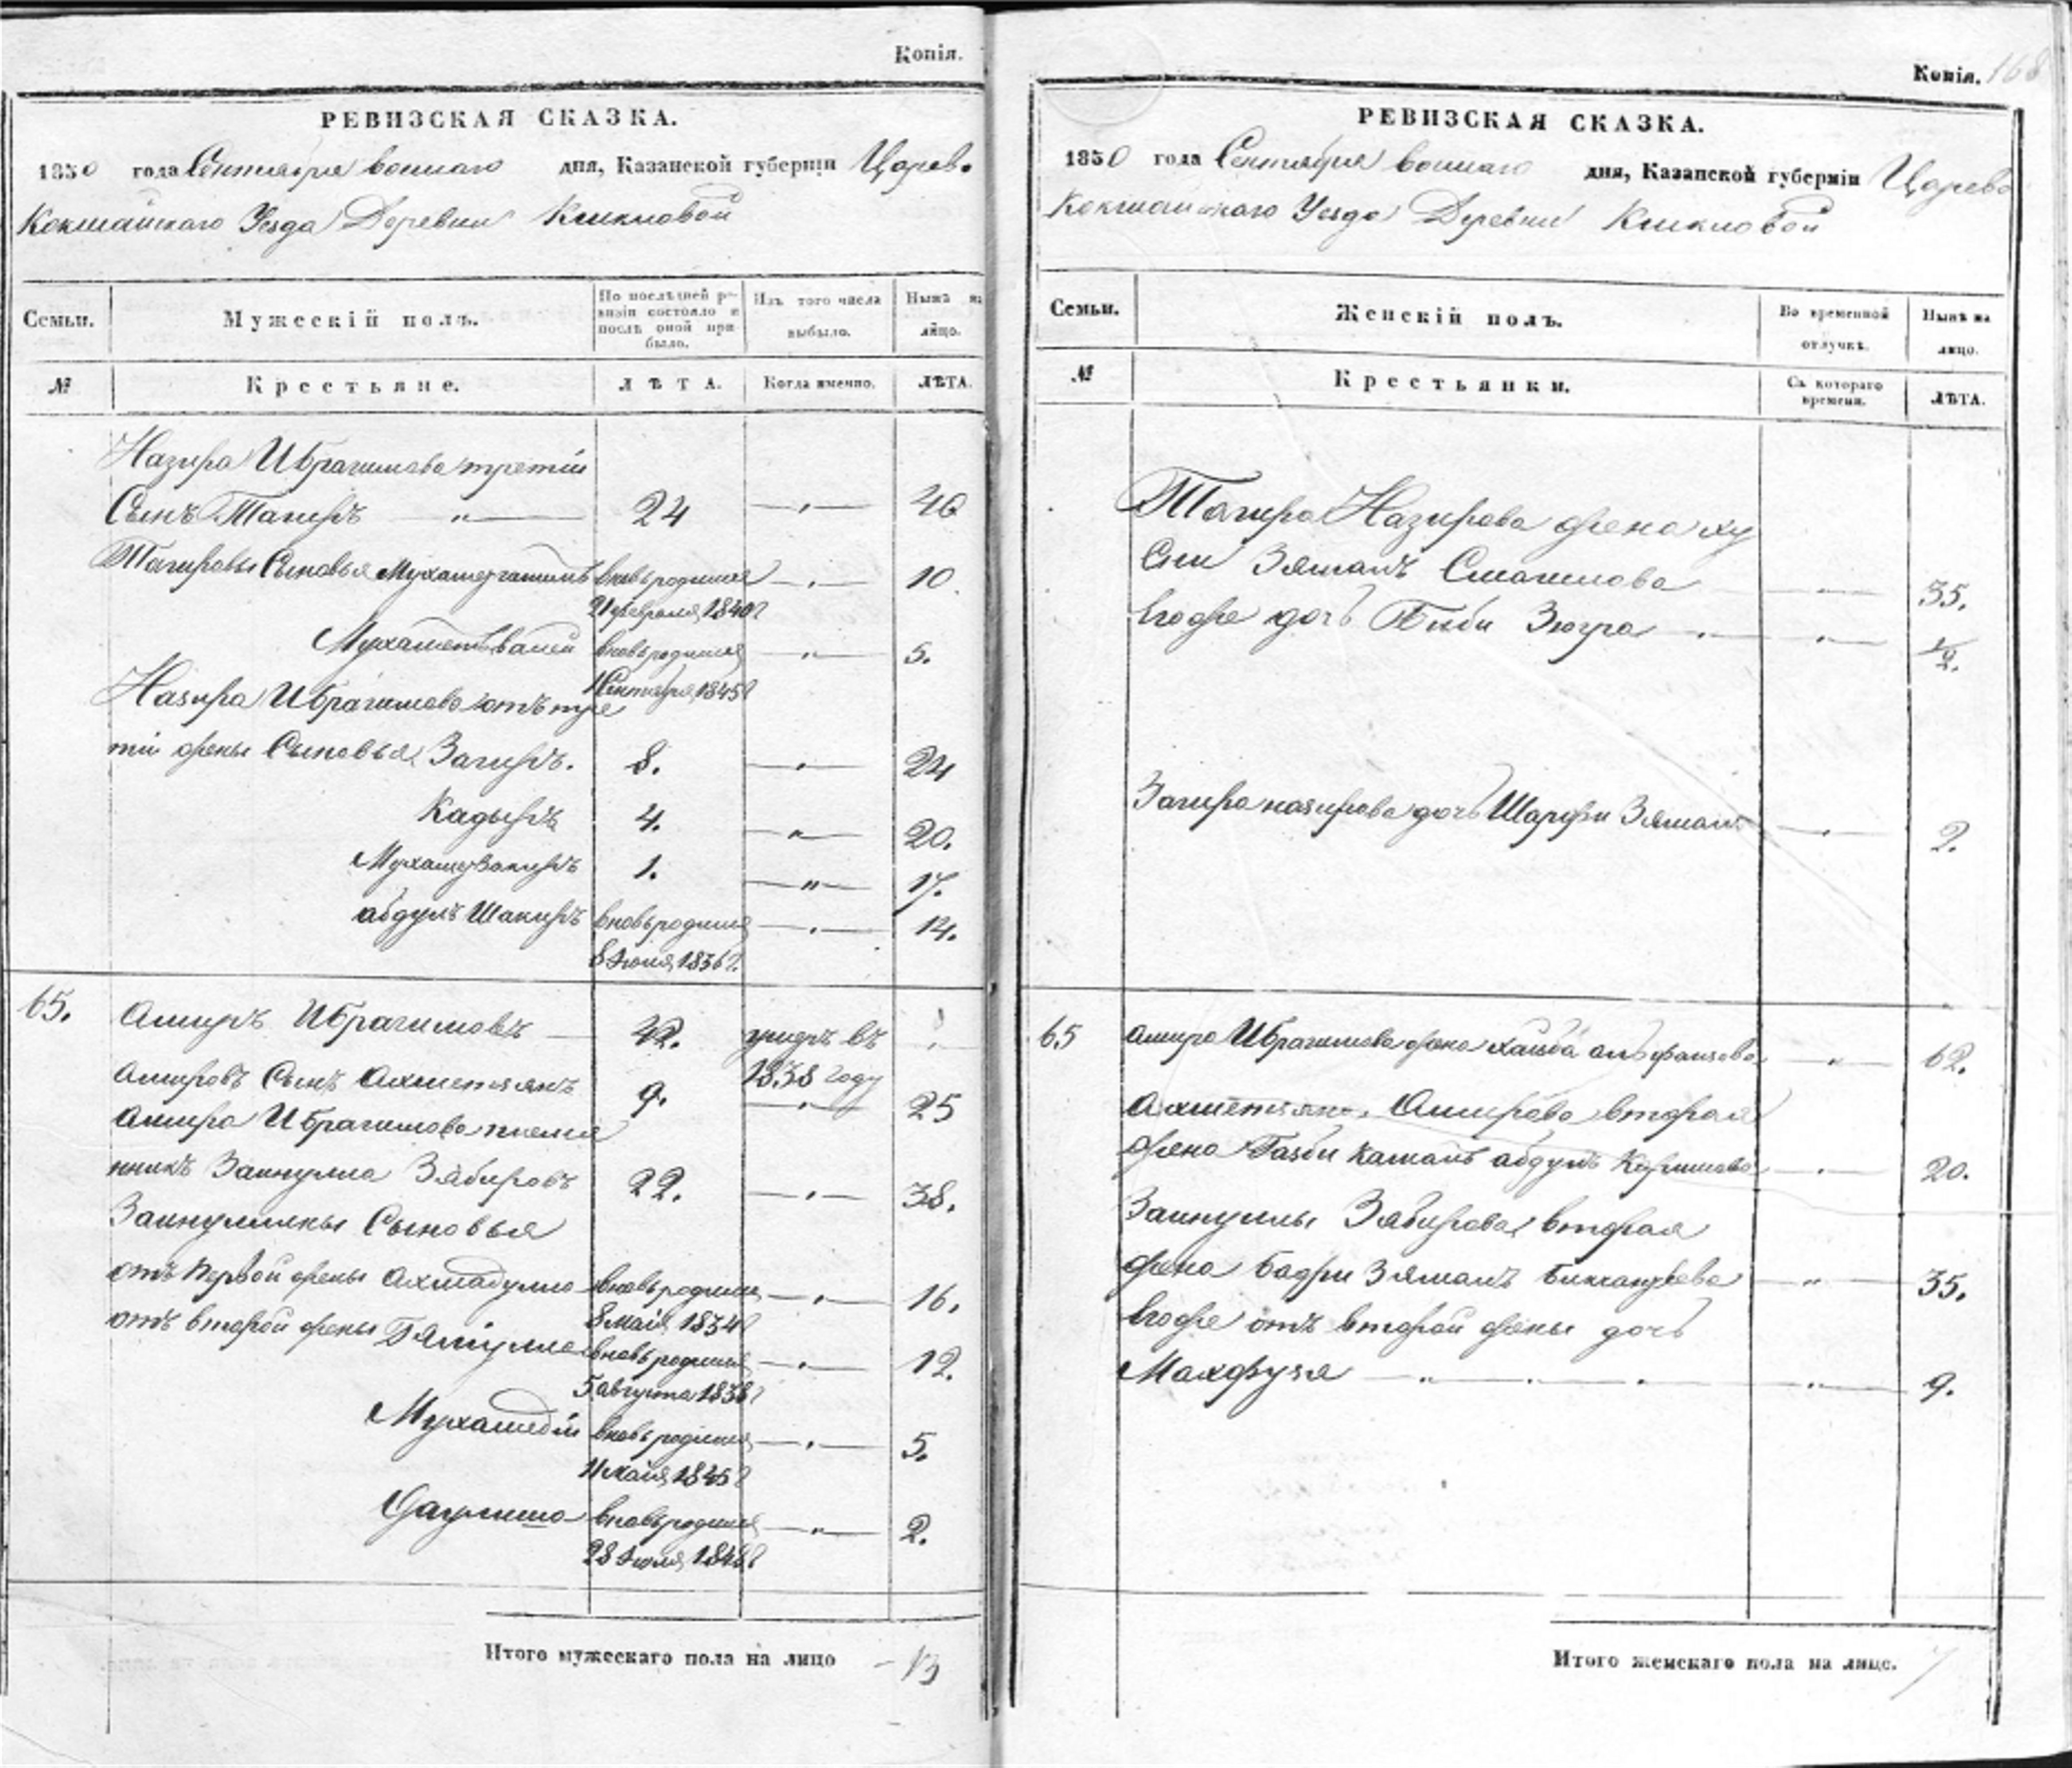 Копія.
РЕВИЗСКАЯ СКАЗКА.
1850 года Сентября восмаго дня, Казанской губерніи Царево
Кокшайскаго Уезда Деревни
Семьи. Мужескій полъ. По послѣдней ревизіи состояло и послѣ оной прибыло. Изъ того числа выбыло. Нынѣ на лицо.
№ Крестьяне. ЛѢТА. Когда именно. ЛѢТА.
Назира Ибрагимова третій
Сынъ Тагиръ — " — 24 — " — 40
Тагировы Сыновья вновьродился — " — 10.
21 февраля 1840 г
Мухаметвалей вновьродился — " — 5.
1 Сентября 1845 г
Назира Ибрагимова отъ тре
тій жены Сыновья Загиръ. 8. — " — 24
Кадыръ 4. — " — 20.
Мухамезакиръ 1. — " — 17.
абдулъ Шакиръ вновьродился — " — 14.
8 Июля 1836 г.
65. Амиръ Ибрагимовъ — 42. умеръ въ
1838 году
Амировъ Сынъ Ахметзянъ 9. — " — 25
Амира Ибрагимова племя
нникъ Заинулла Зябировъ 22. — " — 38.
Заинуллины Сыновья
отъ первой жены Ахмадулла вновьродился — " — 16.
8 мая 1834 г
отъ второй жены вновьродился — " — 12.
5 августа 1838 г
Мухамедій вновьродился — " — 5.
11 мая 1845 г
вновьродился — " — 2.
28 Июля 1848 г
Итого мужескаго пола на лицо - 13
Копія. 168
РЕВИЗСКАЯ СКАЗКА.
1850 года Сентября восмаго дня, Казанской губерніи Царево
Кокшайскаго Уезда Деревни
Семьи. Женскій полъ. Во временной отлучкѣ. Нынѣ на лицо.
№ Крестьянки. Съ котораго времени. ЛѢТА.
Тагира Назирова жена ху
сни Зяманъ Смагилова — " — 35.
Егоже дочь Биби Зюгра — " — " — 1/2.
Загира назирова дочь Шарифи Зяманъ — " — 2.
65 Амира Ибрагимова жена — " — 62.
Ахметзяна Амирова вторая
жена камалъ абдулъ Каримова — " — 20.
Заинуллы Зябирова вторая
жена Бадри Зяманъ — " — 35.
Егоже отъ второй жены дочь
Махфузя — " — " — " — " — 9.
Итого женскаго пола на лице. 7